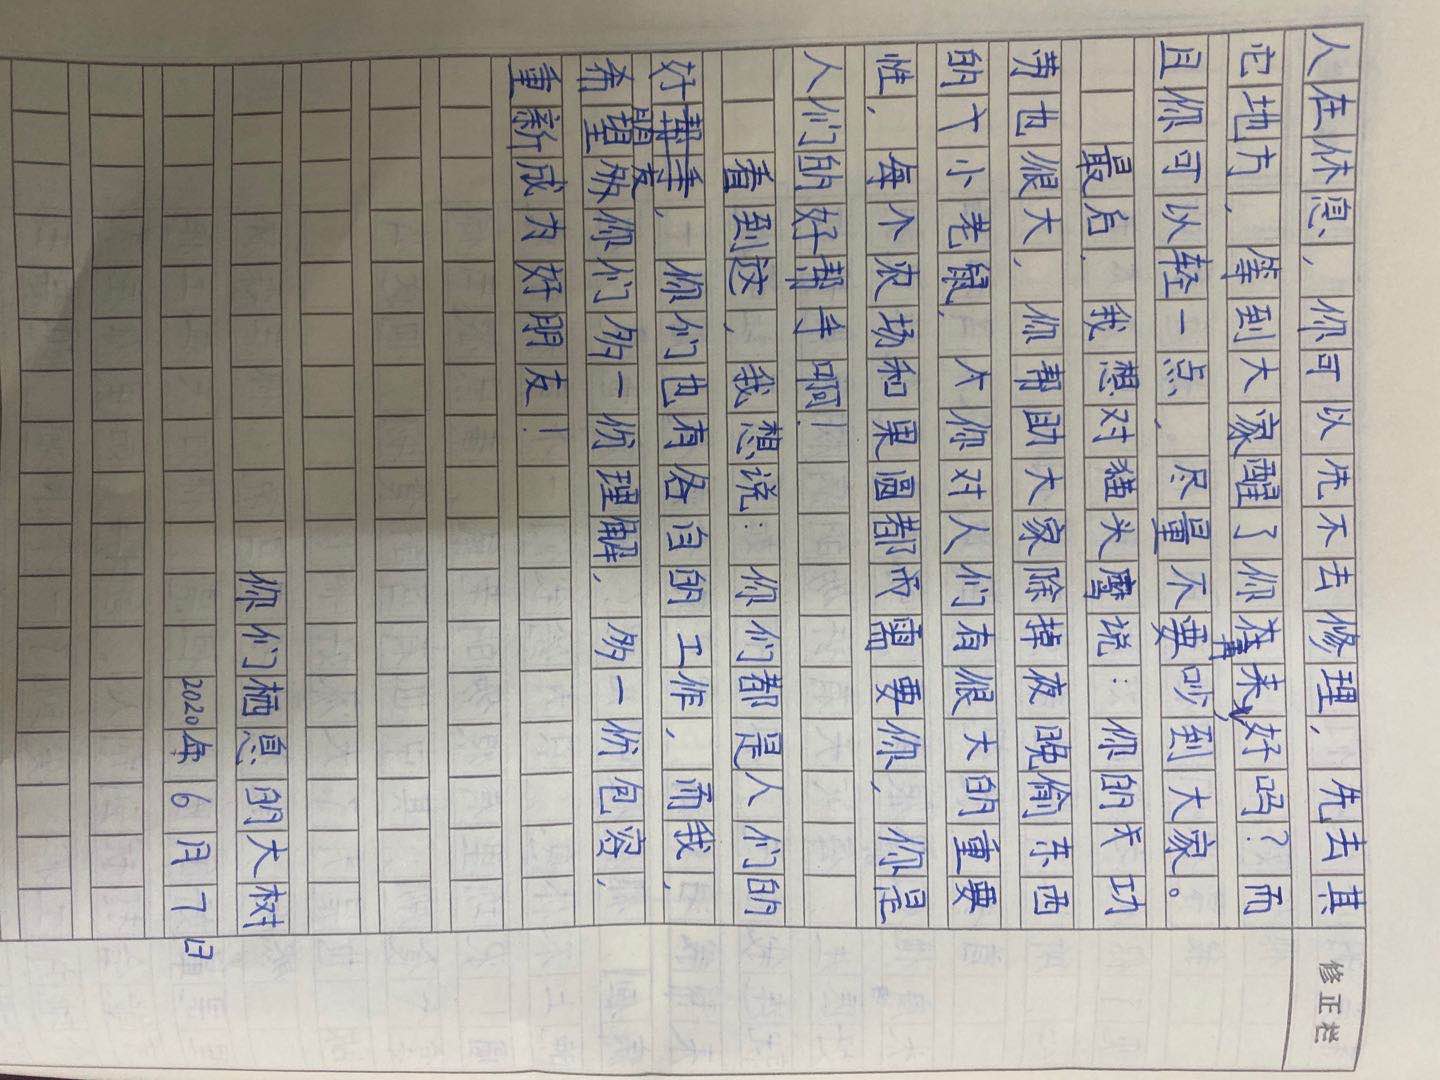 人在休息，你可以先不去修理，先去其
它地方，等到大家醒了你再来，好吗？而
且你可以轻一点，尽量不要吵到大家。
最后，我想对猫头鹰说：你的天功
劳也很大，你帮助大家除掉夜晚偷东西
的个小老鼠，你对人们有很大的重要
性，每个农场和果园都需要你，你是
人们的好帮手啊！
看到这，我想说：你们都是人们的
好朋友，你们也有各自的工作，而我，
希望你们多一份理解，多一份包容，
重新成为好朋友！
你们栖息的大树
2020年6月7日
修正栏